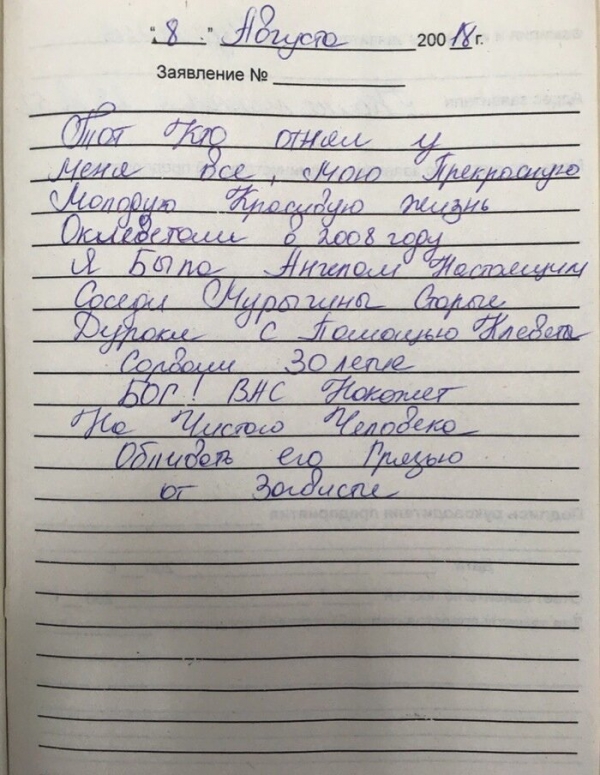 "8" Августа 200 18 г.
Заявление №
Тот Кто отнял у
меня все, мою Прекрасную
Молодую Красивую жизнь
Оклеветали в 2008 году
Я Была Ангелом Настоящим
Соседи Мурыгины Старые
Дураки с Помощью Клевета
30 летие
БОГ! ВАС Накажет
На Чистого Человека
Обливать его Грязью
от Зависти